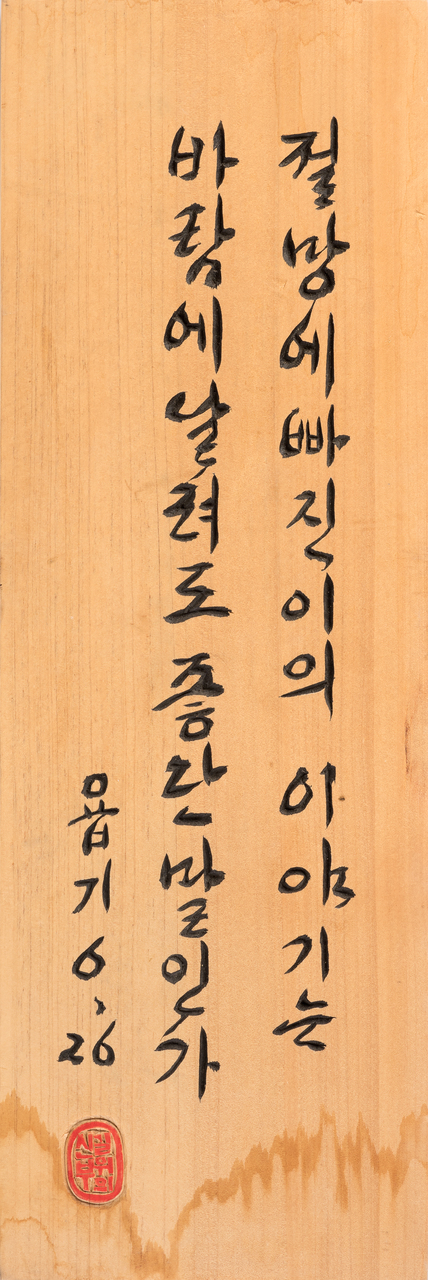 절망에 빠진 이의 이야기는
바람에 날려도 좋단 말인가
욥기 6, 26